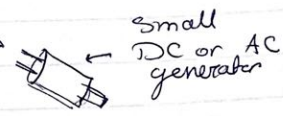 small
DC or AC
generator